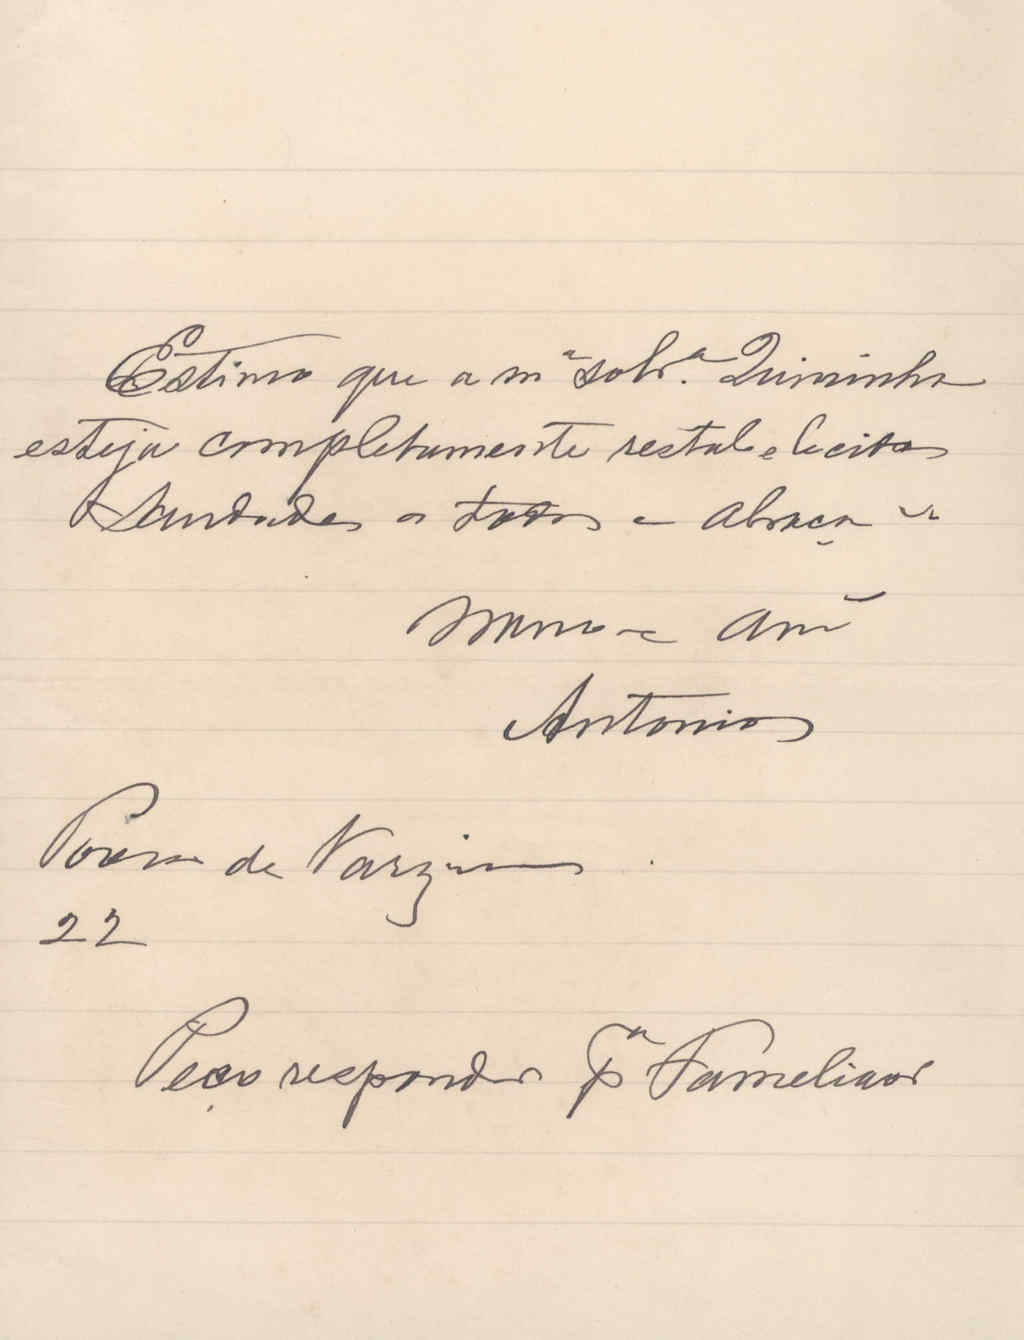 Estimo que a mª sobrª Quininha
esteja completamente restabelecida
Saudades a todos e abraça-o
mano e am
Antonio
Povoa de Varzim
22
Peço responder pª Famelicão